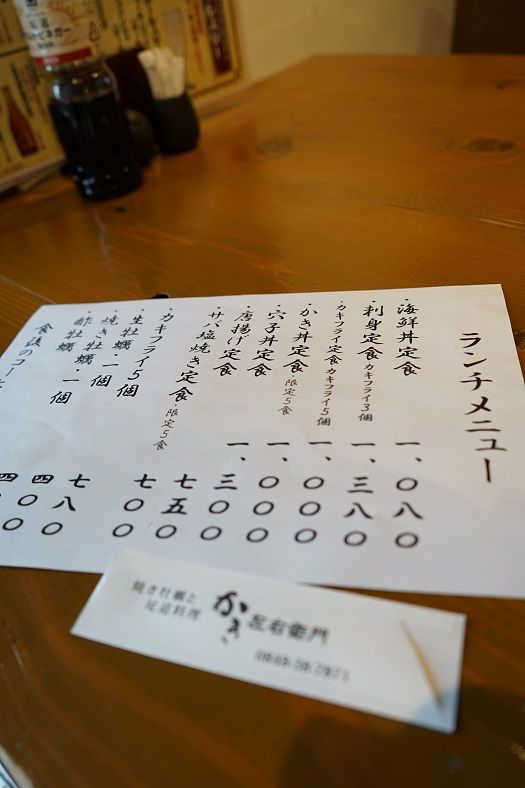 ランチメニュー
・海鮮丼定食 一、〇八〇
・刺身定食 カキフライ3個 一、三八〇
・カキフライ定食 カキフライ5個 一、〇〇〇
・かき丼定食 限定5食 一、〇〇〇
・穴子丼定食 一、三〇〇
・唐揚げ定食 七五〇
・サバ塩焼き定食・限定5食 七〇〇
・カキフライ5個 七八〇
・生牡蠣・一個 四〇〇
・焼き牡蠣・一個 四〇〇
・酢牡蠣・一個
食後のコー
焼き牡蠣と
尾道料理
かき左右衛門